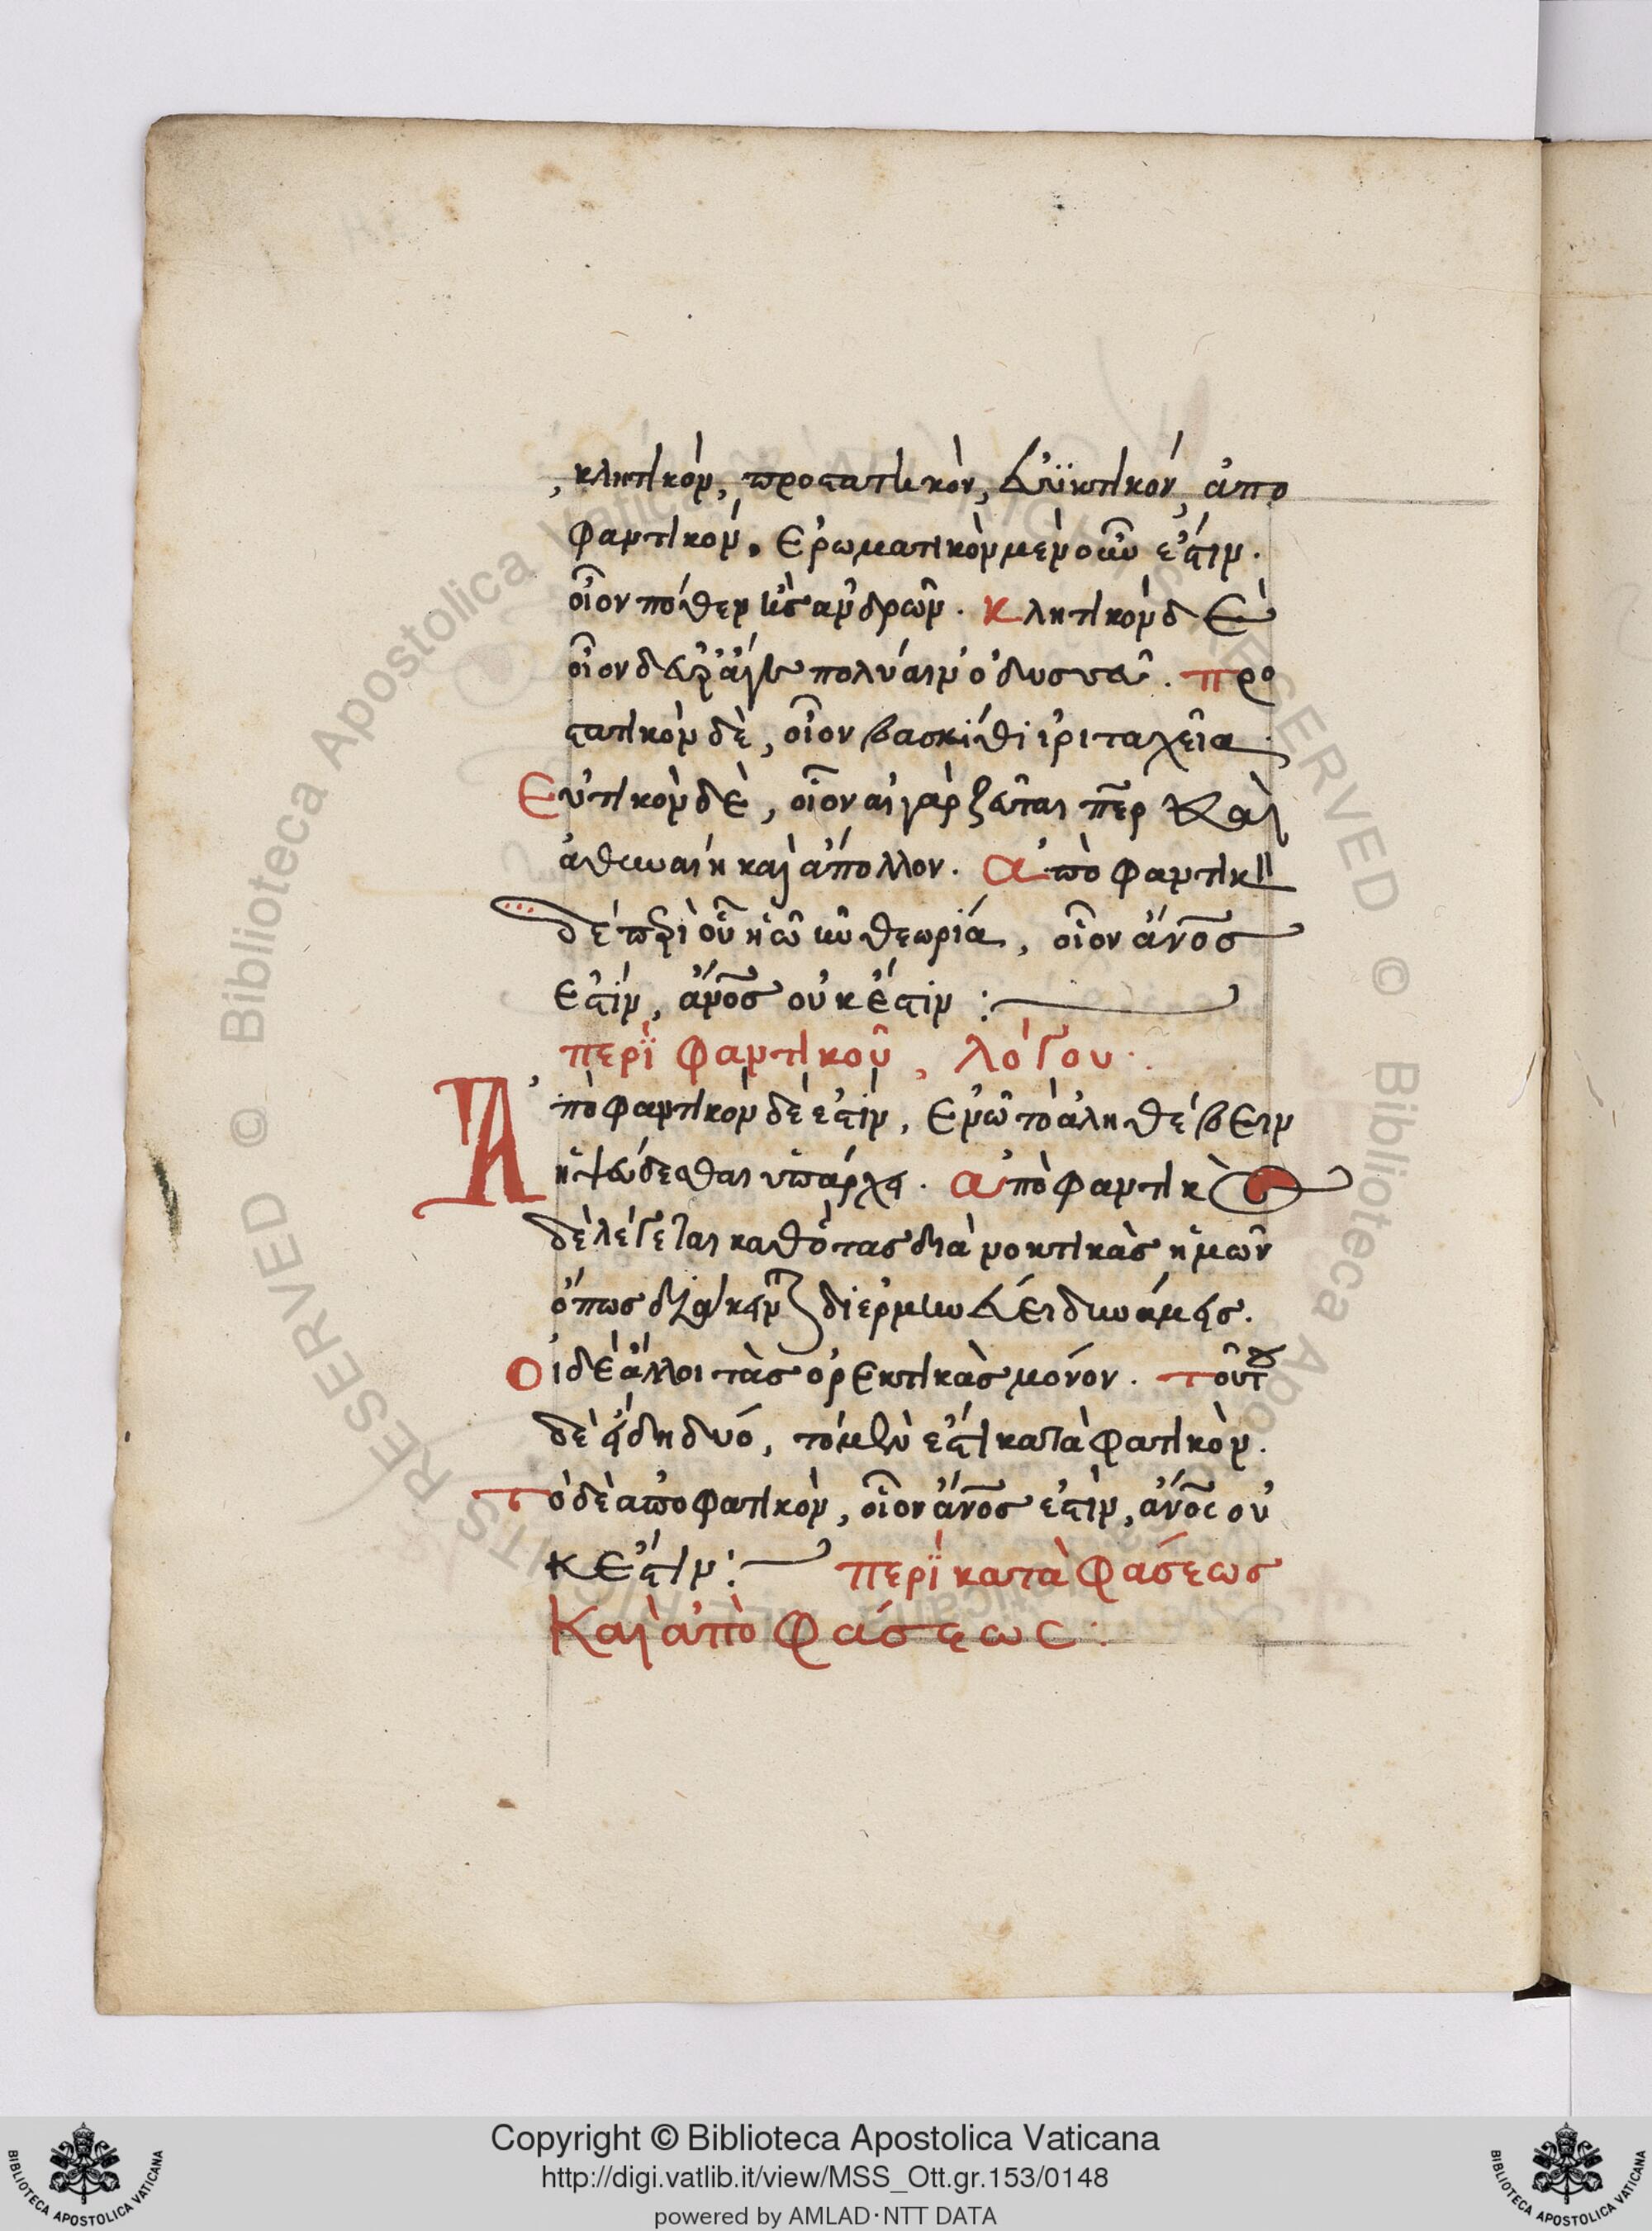 κλητικόν, προστατικὸν, εὐϊκτικόν, ἀπο
φαντικόν. Ερωματικὸν μὲν οὖν ἐστιν.
οἷον πόθεν εἰς ἀνδρῶν. κλητικὸν δὲ
οἷον πολύαιν' ὀδυσεῦ. προ
στατικὸν δὲ, οἷον βασκίθι ἶρι ταχεῖα
Εὐτικὸν δὲ, οἷον αἰ γὰρ ζεῦται περ Καὶ
ἀθηναίη καὶ ἄπολλον. ἀποφαντικ
δὲ περὶ οὗ ἡ θεωρία, οἷον ἄνος
ἐστίν, ἄνος οὐκ ἔστιν :
περὶ φαντικοῦ, λόγου.
Ἀπὸφαντικὸν δέ ἐστιν, ἐν ὧ τὸ ἀληθέβειν
ἢ ψεύδεσθαι ὑπάρχει. ἀπὸφαντικ
δὲ λέγεται καθ' τας διὰ νοητικὰς ἡμῶν
ὅπως δυνάμεις.
οἱ δὲ ἄλλοι τὰς ὀρεκτικὰς μόνον. τούτου
δὲ εἴδη δυό, τὸ μὲν ἐστι κατὰφατικὸν.
τὸ δὲ ἀποφατικὸν, οἷον ἄνος ἐστὶν, ἄνος οὐ
κ ἔστιν : περὶ κατὰφάσεως
Καὶ ἀπὸφάσεως :
Copyright © Biblioteca Apostolica Vaticana
http://digi.vatlib.it/view/MSS_Ott.gr.153/0148
powered by AMLAD·NTT DATA
BIBLIOTECA APOSTOLICA VATICANA
BIBLIOTECA APOSTOLICA VATICANA